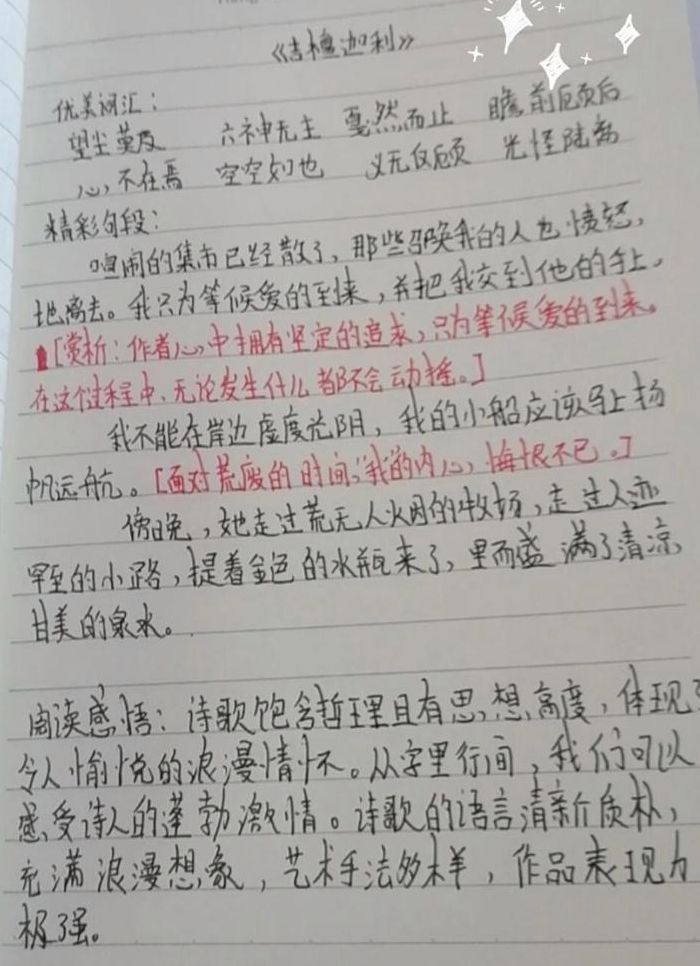 《吉檀迦利》
优美词汇：
望尘莫及 六神无主 戛然而止 瞻前顾后
心不在焉 空空如也 义无反顾 光怪陆离
精彩句段：
喧闹的集市已经散了，那些召唤我的人也愤怒，
地离去。我只为等候爱的到来，并把我交到他的手上。
[赏析：作者心中拥有坚定的追求，只为等候爱的到来。
在这个过程中，无论发生什么都不会动摇。]
我不能在岸边虚度光阴，我的小船应该马上扬
帆远航。[面对荒废的时间，我的内心，悔恨不已。]
傍晚，她走过荒无人烟的牧场，走过人迹
罕至的小路，提着金色的水瓶来了，里面盛满了清凉
甘美的泉水。
阅读感悟：诗歌饱含哲理且有思想高度，体现了
令人愉悦的浪漫情怀。从字里行间，我们可以
感受诗人的蓬勃激情。诗歌的语言清新质朴，
充满浪漫想象，艺术手法多样，作品表现力
极强。